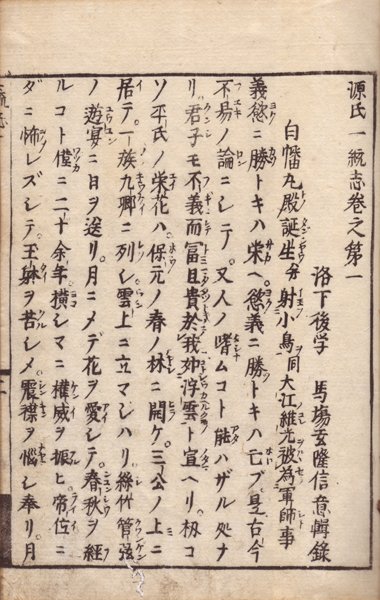 源氏一統志巻之第一
洛下後学 馬場玄隆信意輯録
白幡丸殿誕生分射小鳥同大江維光被為軍師事
義慾ニ勝トキハ栄ヘ慾義ニ勝トキハ亡ブ是古今
不易ノ論ニシテ又人ノ嗜ムコト能ハザル処ナ
リ君子モ不義而冨且貴於我如浮雲ト宣ヘリ扨コ
ソ平氏ノ栄花ハ保元ノ春ノ林ニ開ケ三公ノ上ニ
居テ一族九卿ニ列シ雲上ニ立マジハリ絲竹管弦
ノ遊宴ニ日ヲ送リ月ニメデ花ヲ愛シテ春秋ヲ経
ルコト僅ニ二十余年横シマニ権威ヲ振ヒ帝位ニ
ダニ怖レズシテ王躰ヲ苦シメ震襟ヲ悩シ奉リ月